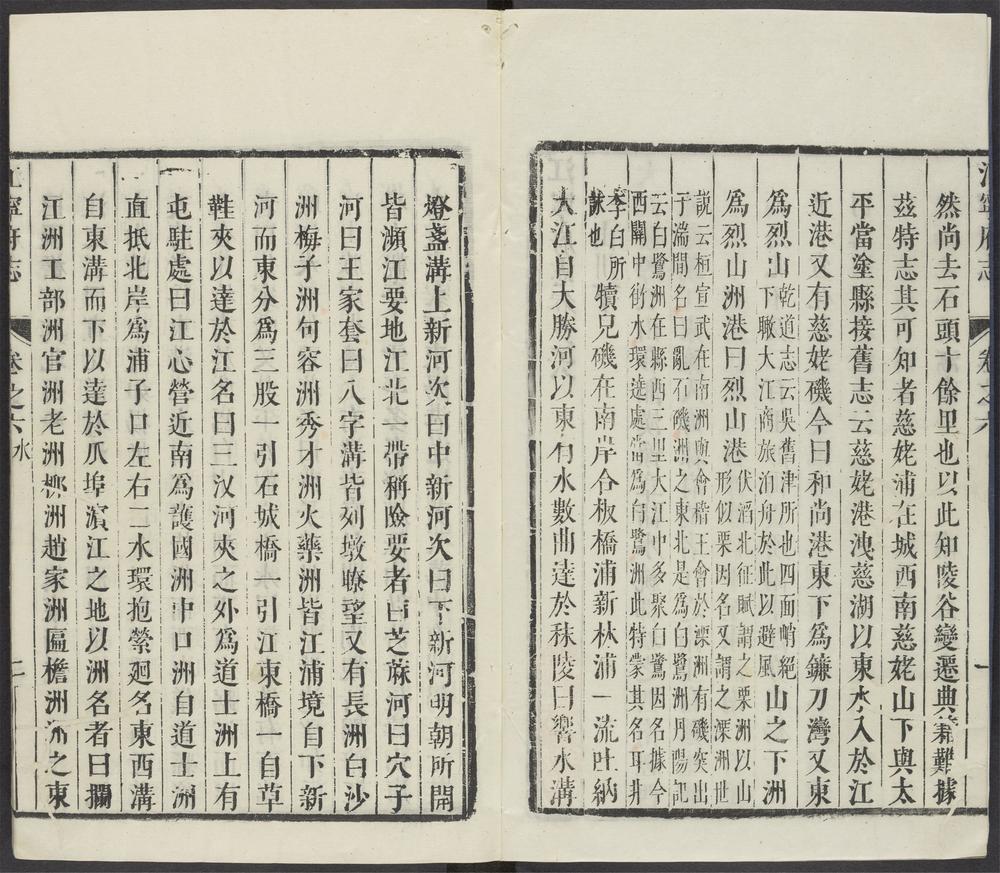 江寧府志 卷之六 一
然尚去石頭十餘里也以此知陵谷變遷典籍難據
茲特志其可知者慈姥浦在城西南慈姥山下與太
平當塗縣接舊志云慈姥港洩慈湖以東水入於江
近港又有慈姥磯今曰和尚港東下為鐮刀灣又東
為烈山乾道志云吳舊津所也四面峭絕下瞰大江商旅泊舟於此以避風山之下洲
為烈山洲港曰烈山港伏滔北征賦謂之栗洲以山形似栗因名又謂之溧洲世
說云桓宣武在南洲與會稽王會於溧洲有磯突出
于湍間名曰亂石磯洲之東北是為白鷺洲丹陽記
云白鷺洲在縣西三里大江中多聚白鷺因名據今
西關中街水環遶處當為白鷺洲此特蒙其名耳井
李白所詠也犢兒磯在南岸合板橋浦新林浦一流吐納
大江自大勝河以東有水數曲達於秣陵曰響水溝
燈盞溝上新河次曰中新河次曰下新河明朝所開
皆瀕江要地江北一帶稱險要者曰芝蔴河曰穴子
河曰王家套曰八字溝皆列墩瞭望又有長洲白沙
洲梅子洲句容洲秀才洲火藥洲皆江浦境自下新
河而東分為三股一引石城橋一引江東橋一自草
鞋夾以達於江名曰三汊河夾之外為道士洲上有
屯駐處曰江心營近南為護國洲中口洲自道士洲
直抵北岸為浦子口左右二水環抱縈迴名東西溝
自東溝而下以達於瓜埠濱江之地以洲名者曰攔
江洲工部洲官洲老洲柳洲趙家洲匾檐洲洲之東
江寧府志 卷之六 水 二